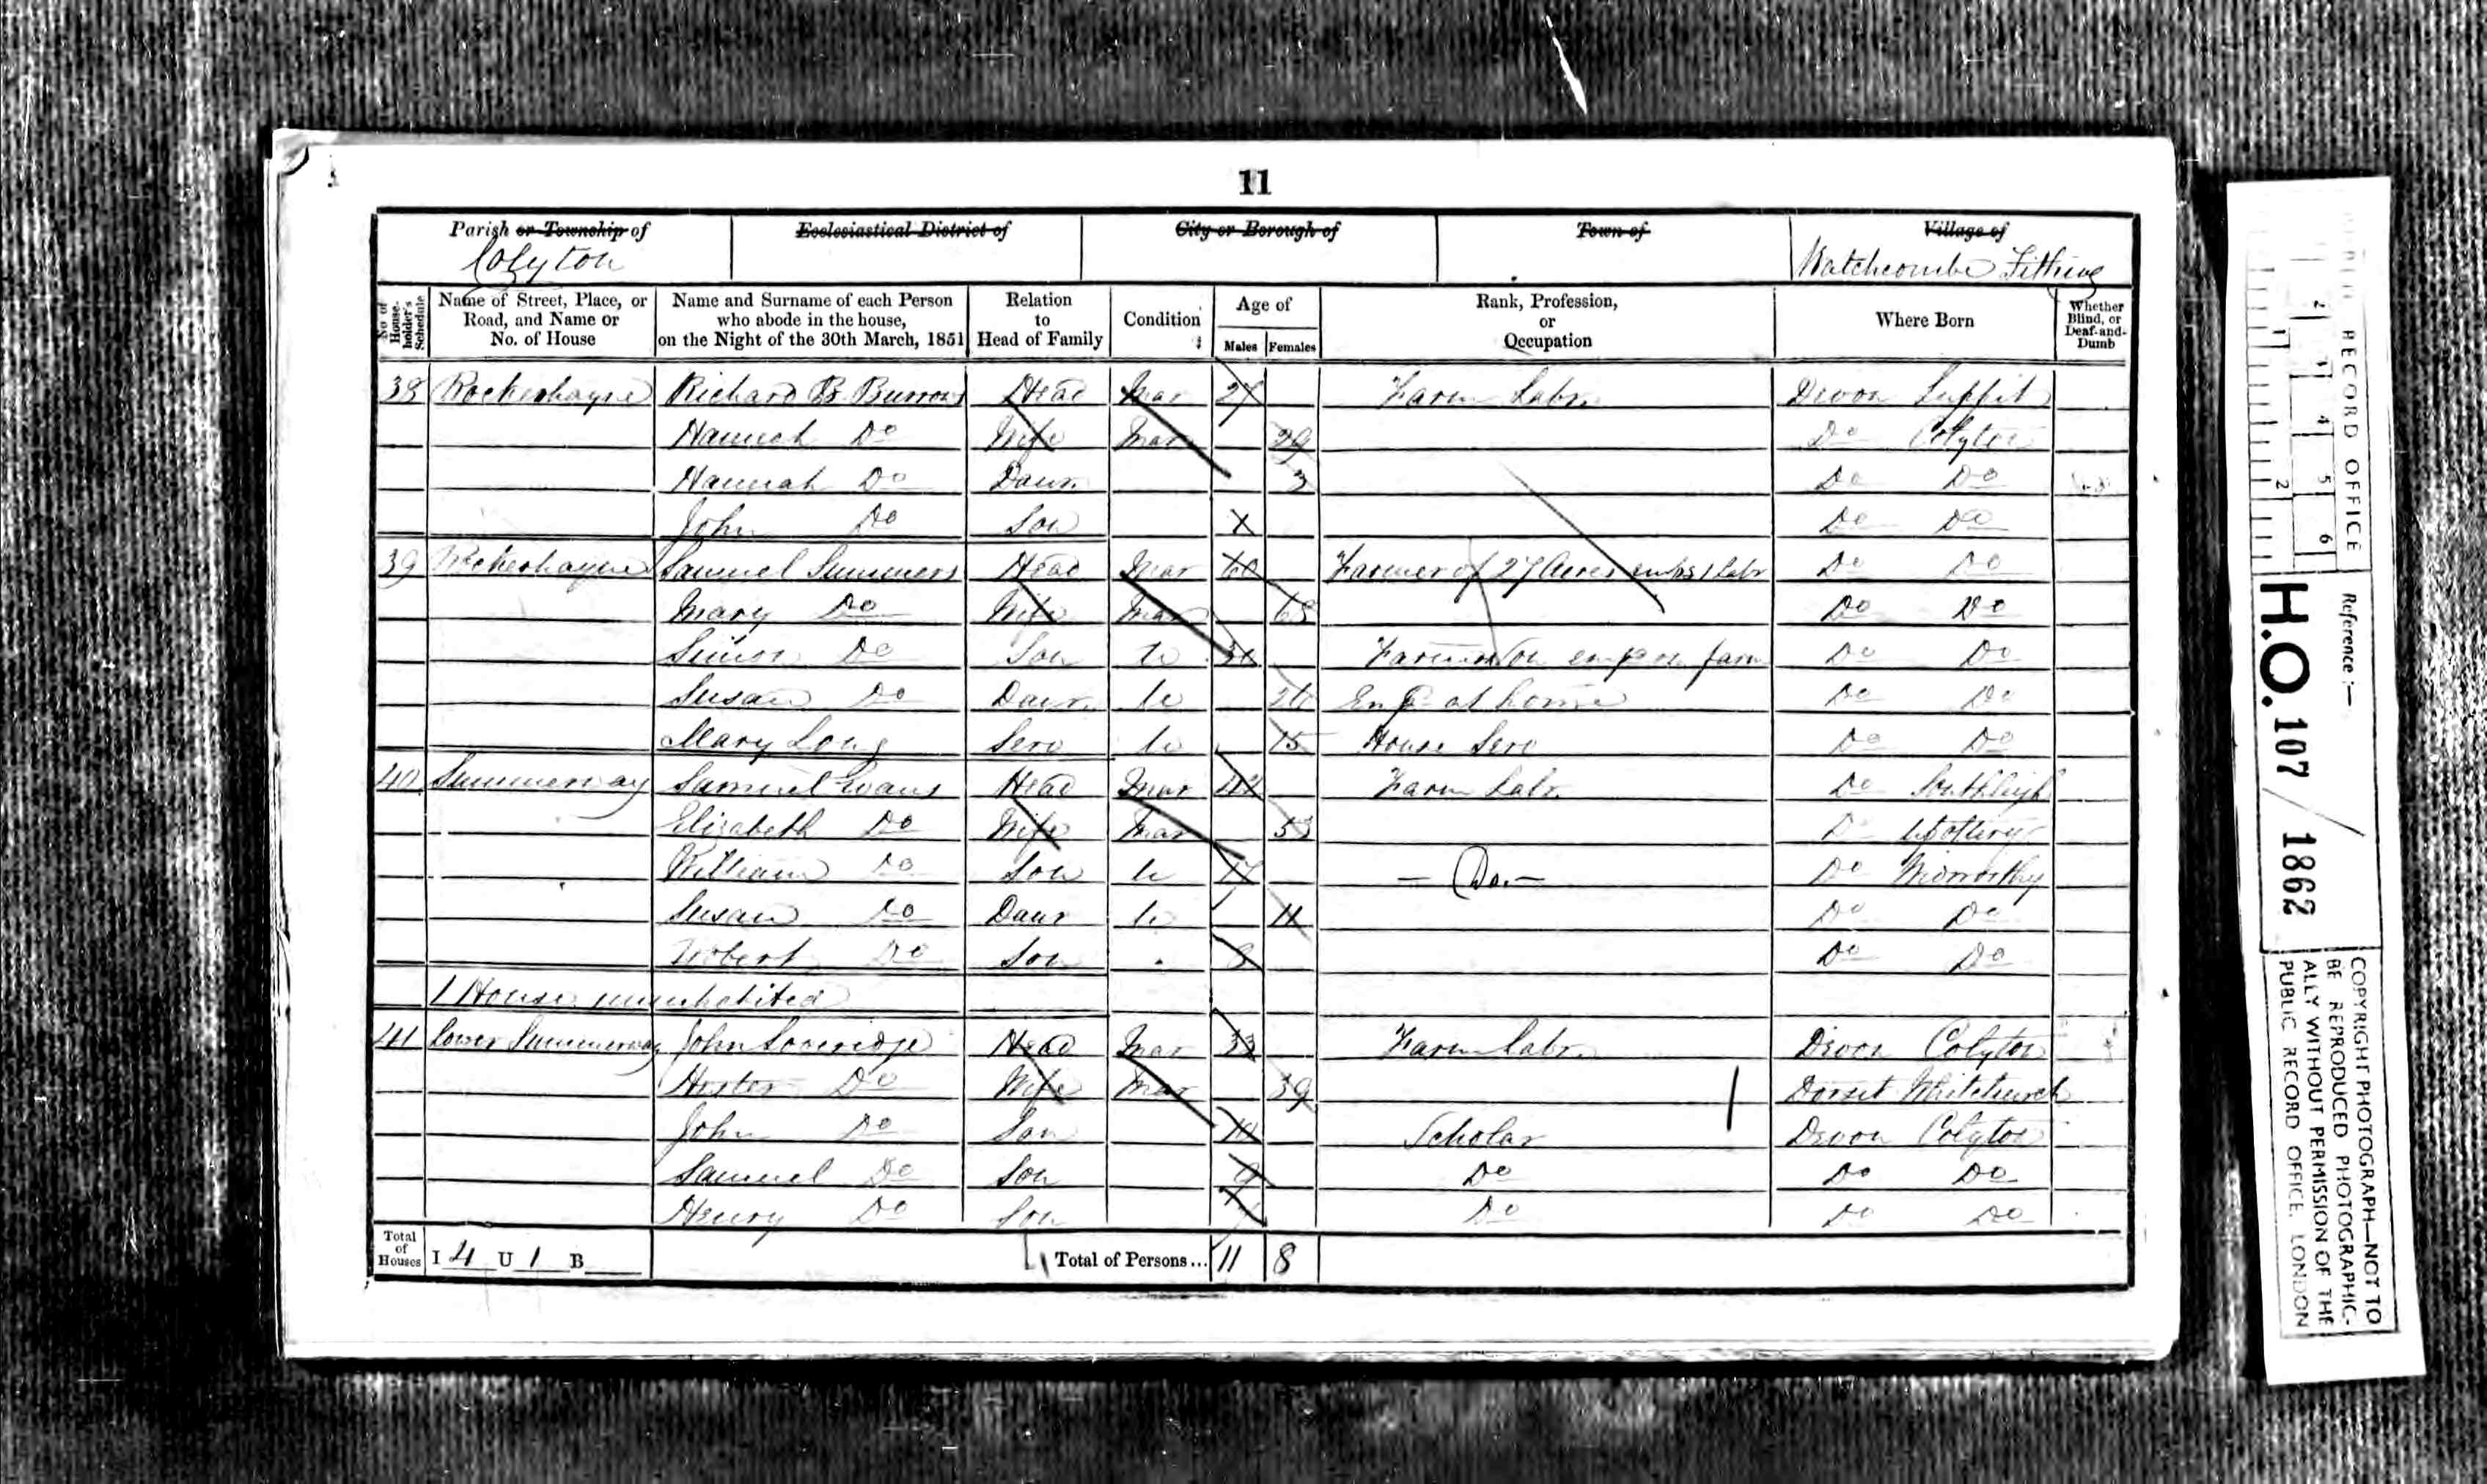 11
Parish or Township of Ecclesiastical District of City or Borough of Town of Village of
Colyton Watchcombe Tithing
No of House-holder's Schedule
Name of Street, Place, or Road, and Name or No. of House
Name and Surname of each Person who abode in the house, on the Night of the 30th March, 1851
Relation to Head of Family
Condition
Age of
Males Females
Rank, Profession, or Occupation
Where Born
Whether Blind, or Deaf-and-Dumb
38 Rockerhayne Richard B. Burrows Head Mar 27 Farm Labr. Devon Luppit
Hannah Do Wife Mar 29 Do Colyton
Hannah Do Daur. 3 Do Do
John Do Son Do Do
39 Rockerhayne Samuel Summers Head Mar 60 Farmer of 27 Acres 1 Labr Do Do
Mary Do Wife Mar Do Do
Simon Do Son U farm Do Do
Susan Do Daur. U at home Do Do
Mary Long Serv U 15 House Serv Do Do
40 Summerway Samuel Evans Head Mar Farm Labr. Do Southleigh
Elizabeth Do Wife Mar 53 Do Upottery
William Do Son U 17 – Do. – Do
Susan Do Daur U 11 Do Do
Robert Do Son 8 Do Do
1 House uninhabited
41 Lower Summerway John Loveridge Head Mar 33 Farm Labr. Devon Colyton
Hester Do Wife Mar 39 Dorset Whitchurch
John Do Son 10 Scholar Devon Colyton
Samuel Do Son 9 Do Do Do
Henry Do Son Do Do Do
Total of Houses I 4 U 1 B Total of Persons... 11 8
RECORD OFFICE
Reference :—
H.O. 107 / 1862
COPYRIGHT PHOTOGRAPH—NOT TO
BE REPRODUCED PHOTOGRAPHIC-
ALLY WITHOUT PERMISSION OF THE
PUBLIC RECORD OFFICE, LONDON